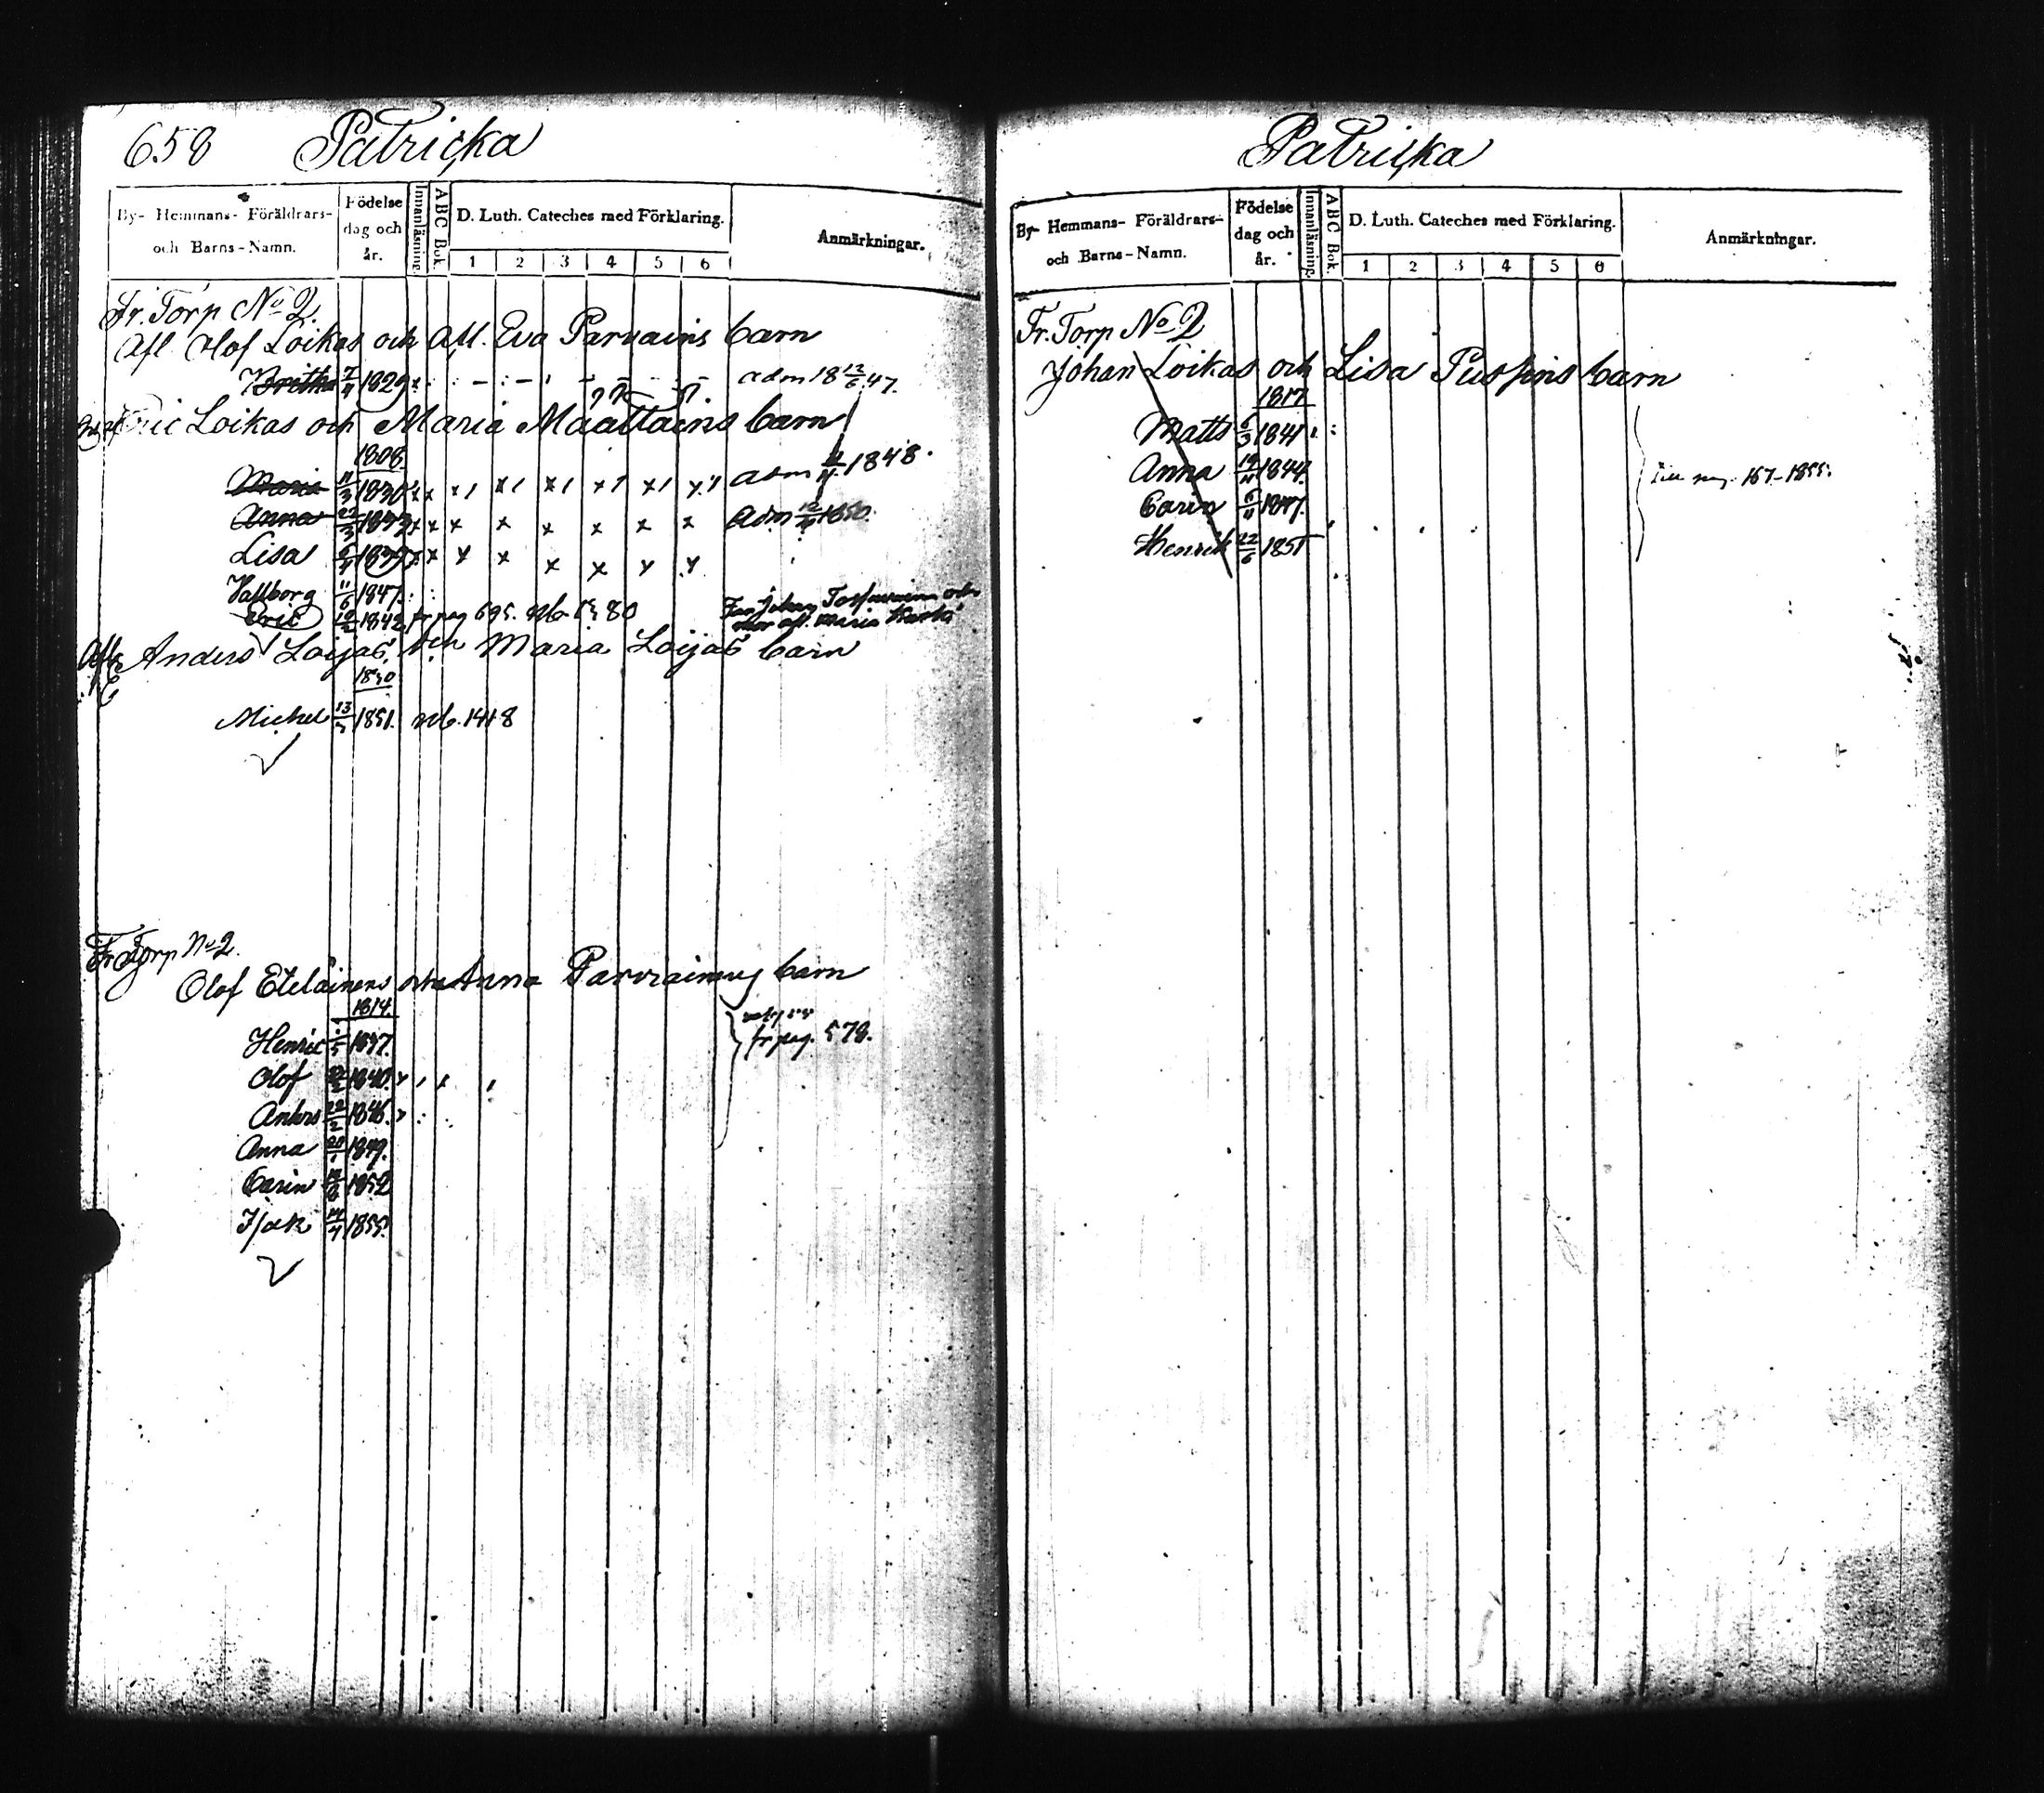 658 Patricka
By- Hemmans- Föräldrars- och Barns-Namn. Födelse dag och år. Innanläsning. ABC Bok. D. Luth. Cateches med Förklaring. 1 2 3 4 5 6 Anmärkningar.
Fr. Torp No 2.
Afl. Olof Loikas och Afl. Eva Parvains barn
Britha 7/11 1829 adm 18 13/6 47.
Eric Loikas och Maria Määttäins barn
1808.
Maria 11/3 1830 x x x1 x1 x1 x1 x1 x1 adm 1848.
Anna 22/3 1833 x x x x x x x x Adm 1850.
Lisa x x x x x x x x
Vallborg 11/6 1847.
Eric 1842 fr pag 695.
Anders Loijas och Maria Loijas barn
1830
Michel 13/5 1851. 1418
Fr Torp No 2.
Olof Eteläinens och Anna Parviainens barn
1814.
Henric 1837. fr pag. 578.
Olof 1840.
Anders 1846.
Anna 1849.
Carin 1852
Isak 1855.
Patricka
By- Hemmans- Föräldrars- och Barns-Namn. Födelse dag och år. Innanläsning. ABC Bok. D. Luth. Cateches med Förklaring. 1 2 3 4 5 6 Anmärkningar.
Fr. Torp No 2
Johan Loikas och Lisa Puspins barn
1817
Matts 1841
Anna 1844. Till pag. 167-1855.
Carin 1847.
Henrik 22/6 1851